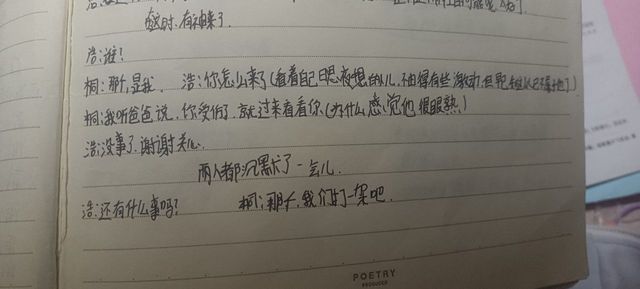 这时,有神来了.
浩:谁!
桐:那个,是我. 浩:你怎么来了(看着自己日思夜想的人儿,不由得有些激动,但
桐:我听爸爸说,你受伤了.就过来看看你(为什么感觉他很眼熟)
浩:没事了.谢谢关心.
两人都沉默了一会儿.
浩:还有什么事吗? 桐:那个,我们打一架吧.
POETRY
PRODUCER